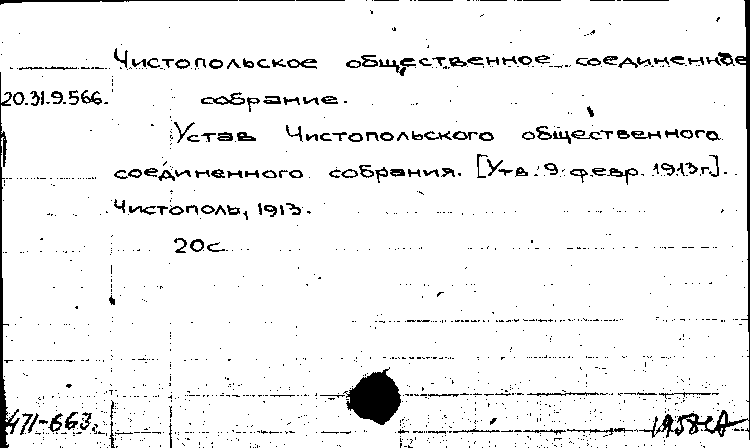 Чистопольское общественное соединенное
20.31.9.566. собрание.
Устав Чистопольского общественного
соединенного собрания. [Утв. 9 февр. 1913г].
Чистополь, 1913.
20с
471-663.